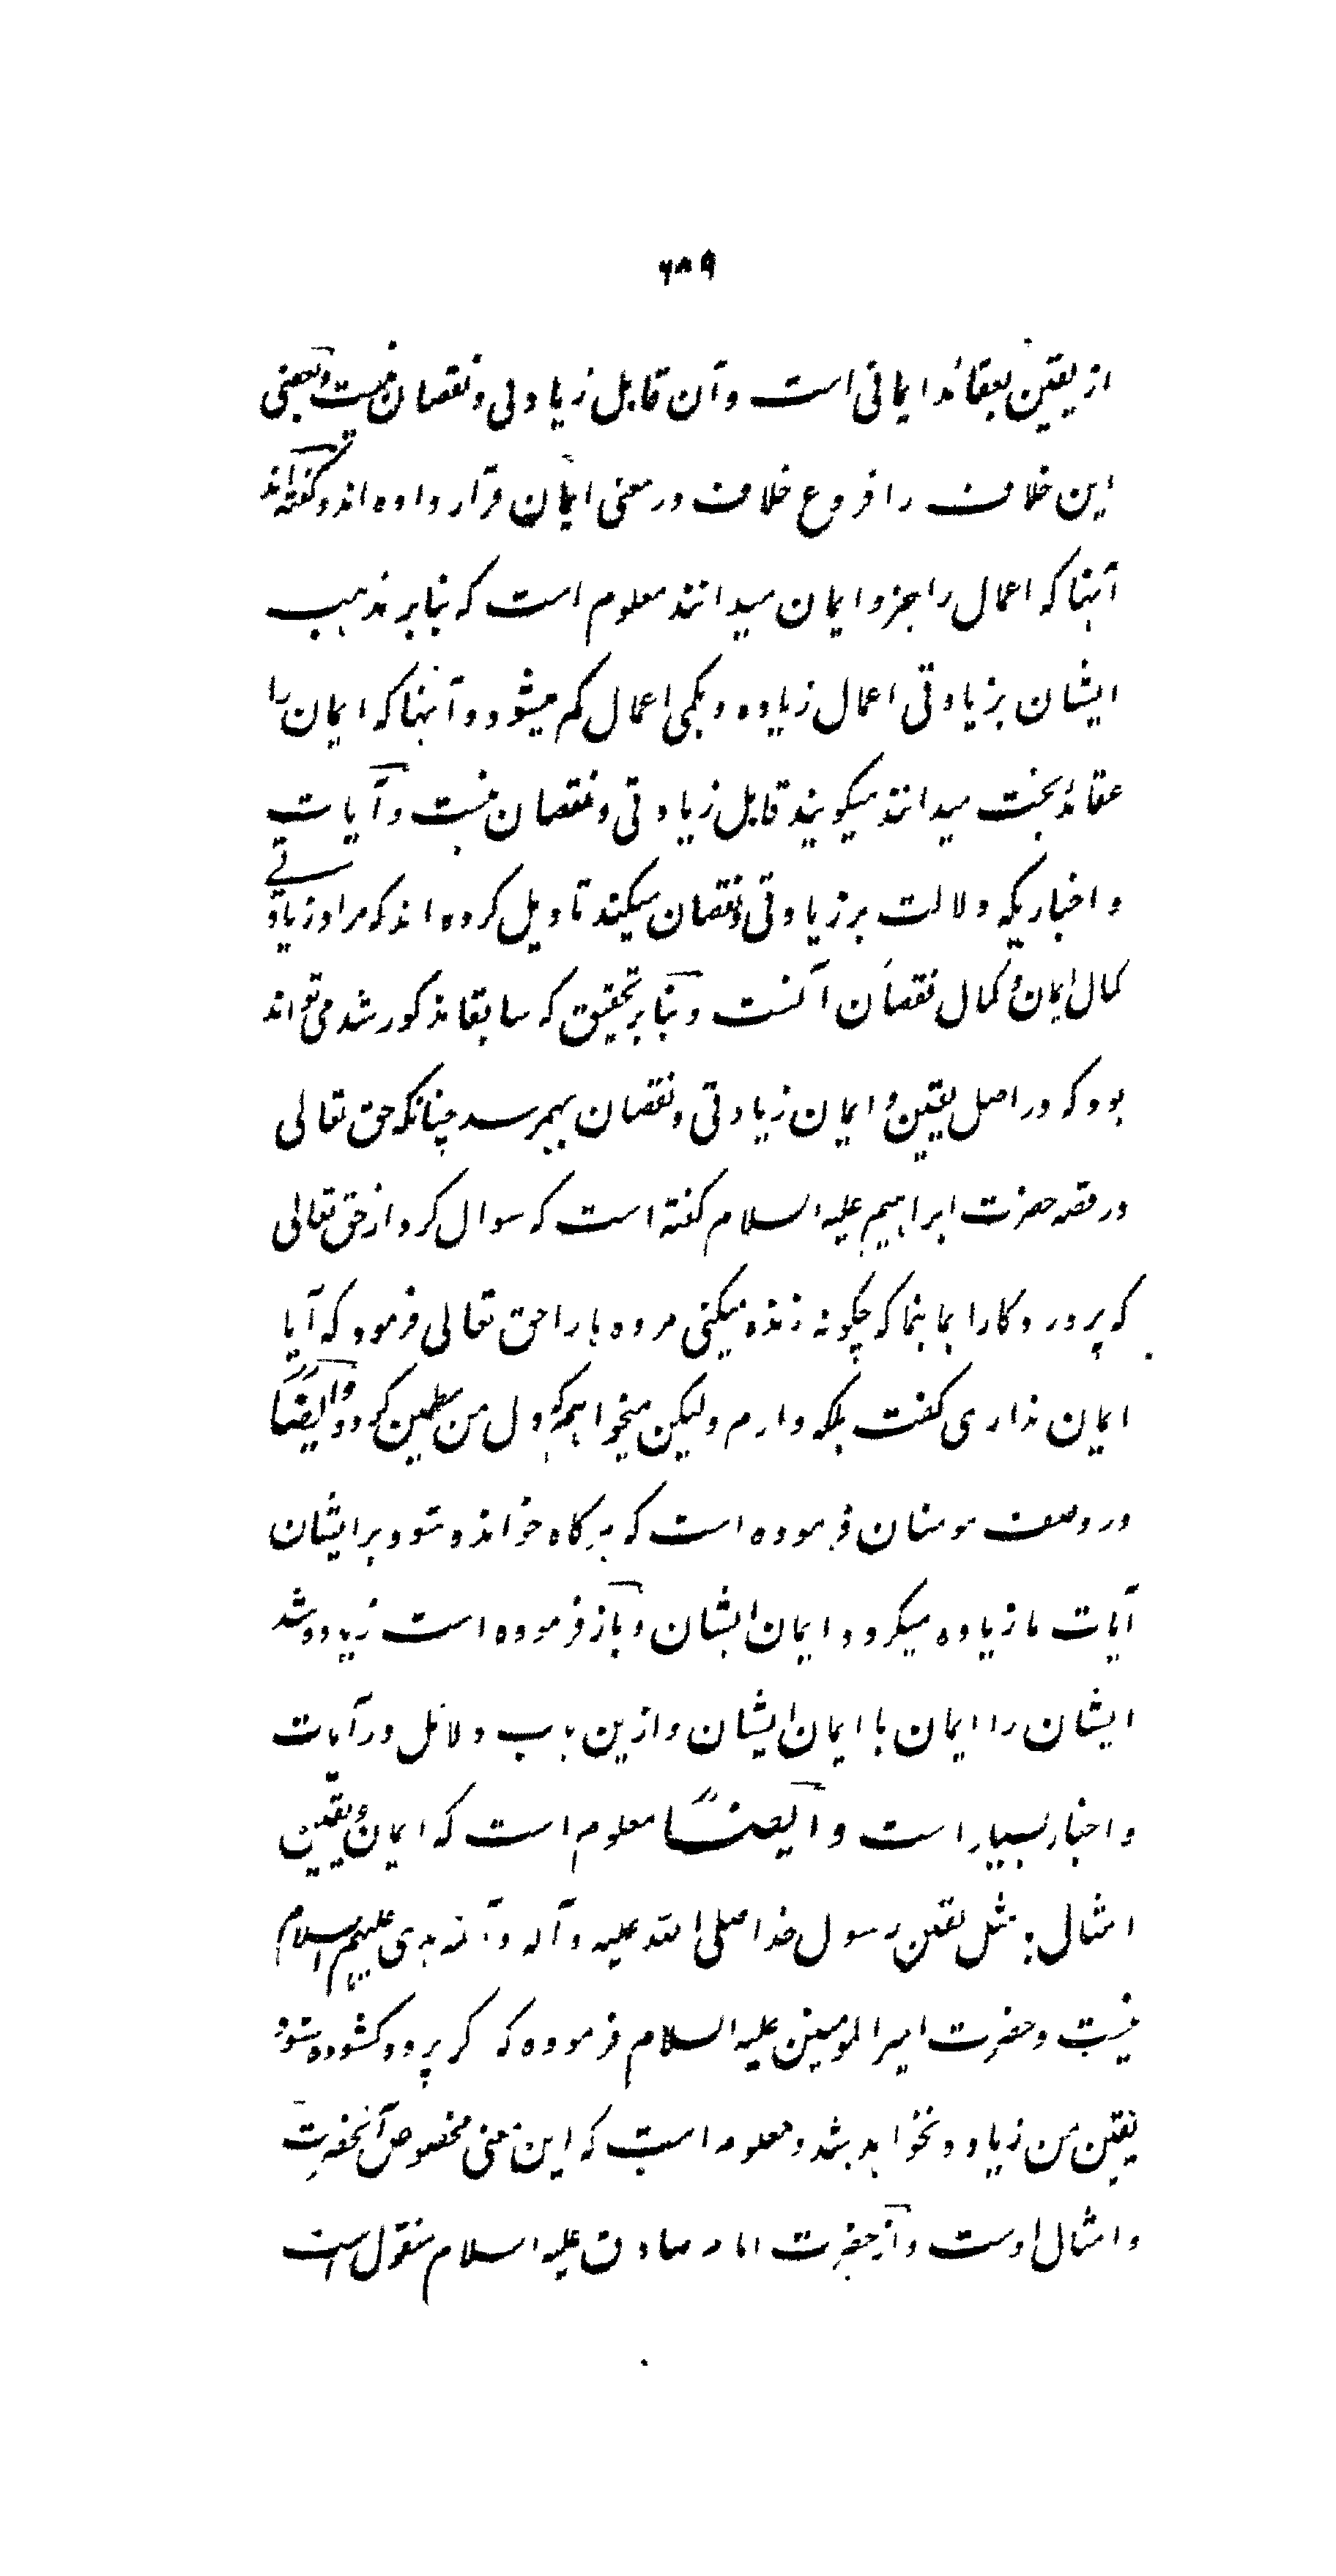 ۶۸۹
از یقین بعقائد ایمانی است و آن قابل زیادتی و نقصان نیست و بعضی
این خلاف را فروع خلاف در معنی ایمان قرار داده اند و گفته اند
آنها که اعمال را جزو ایمان میدانند معلوم است که بنابر مذهب
ایشان بزیادتی اعمال زیاده و بکمی اعمال کم میشود و آنها که ایمان را
عقائد بحت میدانند میگویند قابل زیادتی و نقصان نیست و آیات
و اخباریکه دلالت بر زیادتی و نقصان میکند تاویل کرده اند که مراد زیادتی
کمال ایمان و کمال نقصان آنست و بنابر تحقیق که سابقا مذکور شد می تواند
بود که در اصل یقین و ایمان زیادتی و نقصان بهمرسد چنانکه حق تعالی
در قصه حضرت ابراهیم علیه السلام گفته است که سوال کرد از حق تعالی
که پروردگارا بما بنما که چگونه زنده میکنی مرده ها را حق تعالی فرمود که آیا
ایمان نداری گفت بلکه دارم ولیکن میخواهم که دل من مطمئن گردد و ایضاً
در وصف مومنان فرموده است که هرگاه خوانده شود بر ایشان
آیات ما زیاده میگردد ایمان ایشان و باز فرموده است زیاده شد
ایشان را ایمان با ایمان ایشان و ازین باب دلائل در آیات
و اخبار بسیار است و ایضاً معلوم است که ایمان و یقین
امثال ما مثل یقین رسول خدا صلی الله علیه و آله و آئمه هدی علیهم السلام
نیست و حضرت امیر المومنین علیه السلام فرموده که گر پرده گشوده شود
یقین من زیاده نخواهد شد و معلوم است که این معنی مخصوص آنحضرت
و امثال اوست و از حضرت امام صادق علیه السلام منقول است